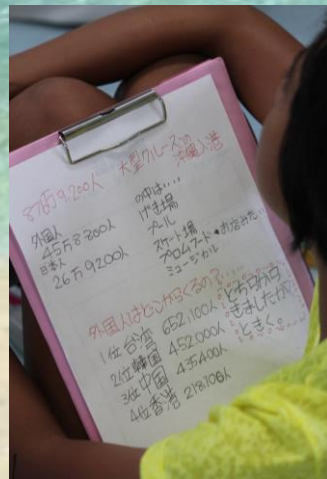 大型クルーズの
沖縄入港
87万9.200人
外国人
45万8700人
日本人
26万9200人
の中は....
げき場
プール
スケート場
プロムナード●お店みたい
ミュージカル
外国人はどこからくるの?
1位台湾 652,100人
2位韓国 452000人
3位中国 435400人
4位香港 218,100人
どちらから
きましたか
ときく。